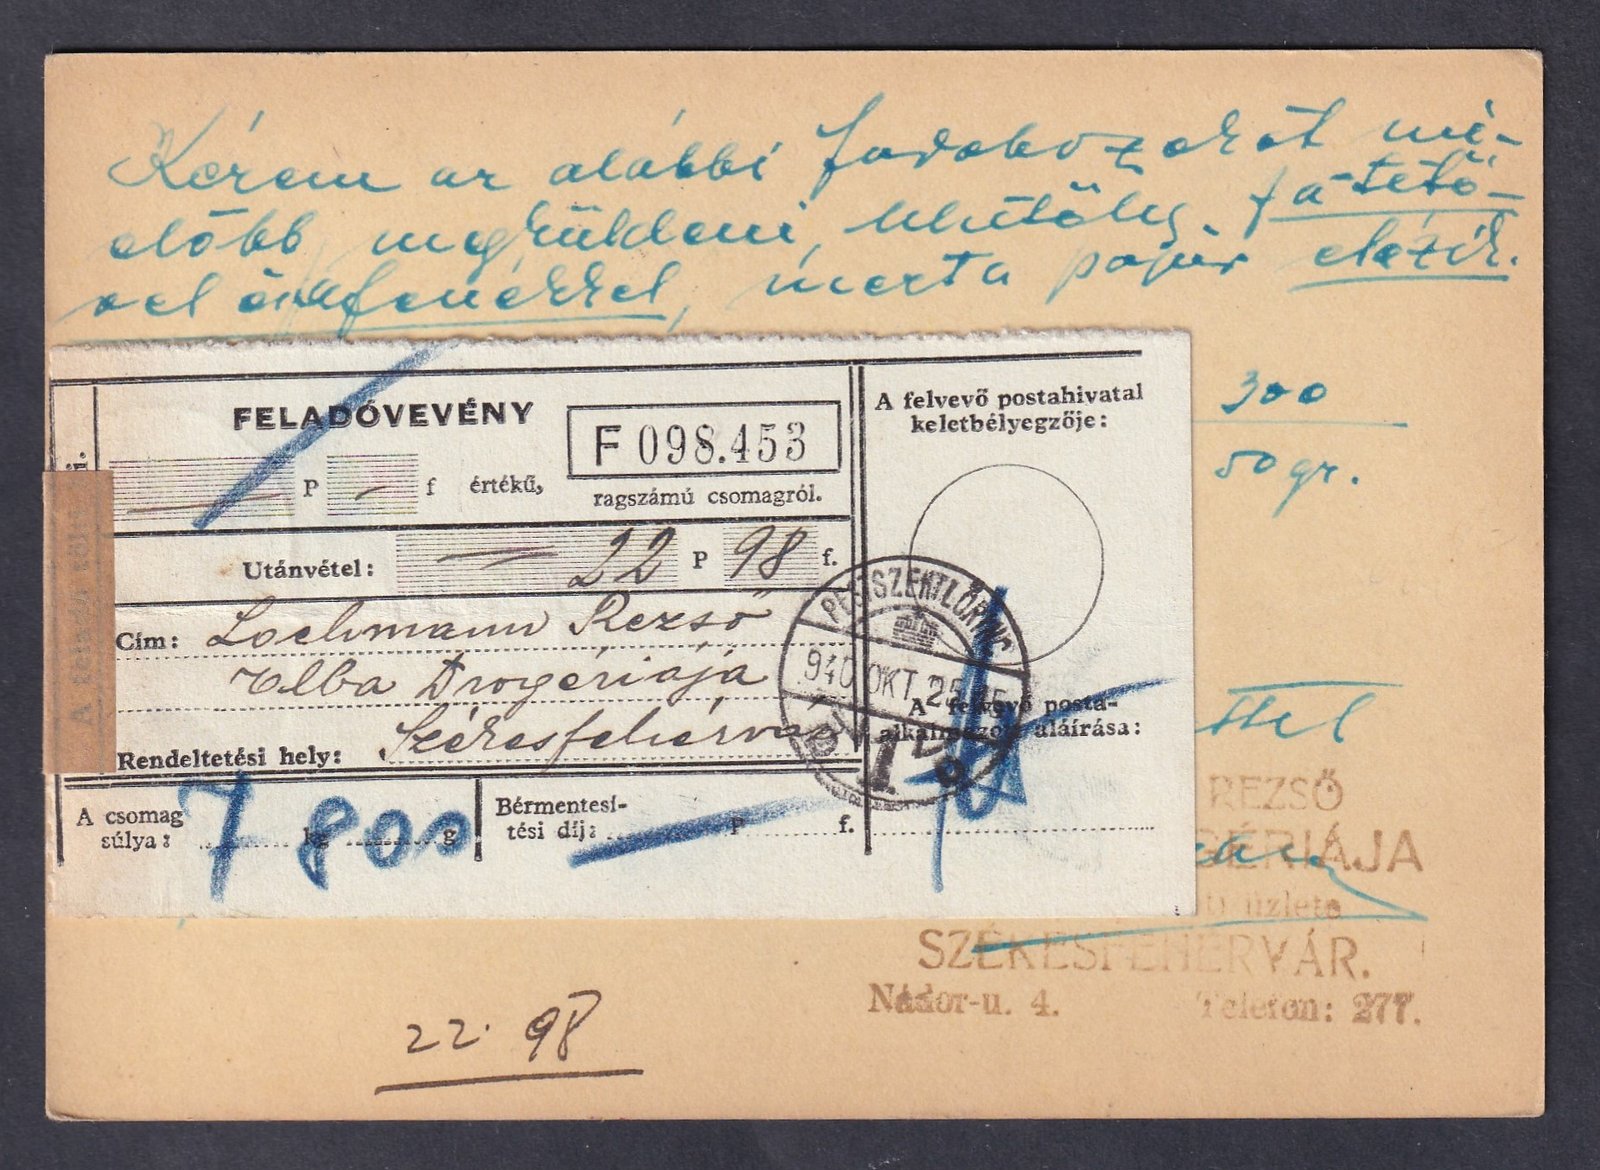 Kérem az alábbi fadobozokat mi-
előbb megküldeni, lehetőleg fatető-
vel és fenékkel, mert a papír elázik.
300
50 gr.
FELADÓVEVÉNY
F 098.453
P f értékű,
ragszámú csomagról.
A felvevő postahivatal
keletbélyegzője:
Utánvétel: 22 P 98 f.
Cím: Lochmann Rezső
Elba Drogériája
Rendeltetési hely: Székesfehérvár
PESTSZENTLŐRINC
940 OKT 25
1
A felvevő posta-
alkalmazott aláírása:
A csomag
súlya: 7 kg 800 g
Bérmentesí-
tési díj: P f.
REZSŐ
GÉRIÁJA
üzlete
SZÉKESFEHÉRVÁR.
Nádor-u. 4. Telefon: 277.
22. 98